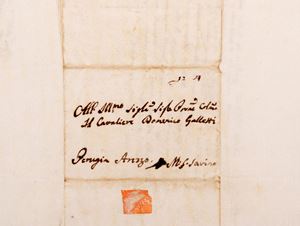 12 A
All Illmo Sigre Sigr Pne Colmo
Il Cavaliere Domenico Galletti
Perugia Arezzo Mte S. Savino